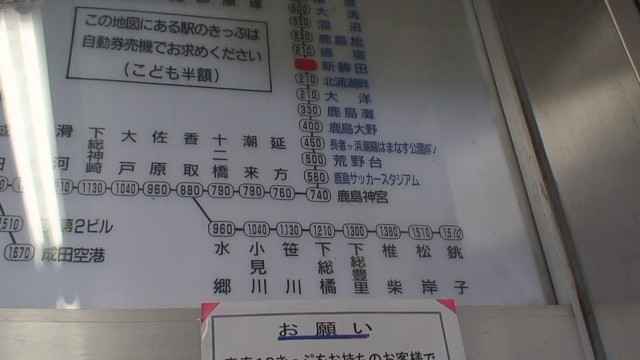 この地図にある駅のきっぷは
自動券売機でお求めください
(こども半額)
大洗
530 涸沼
230 鹿島旭
210 徳宿
新鉾田
210 北浦湖畔
210 大洋
330 鹿島灘
400 鹿島大野
450 長者ヶ浜潮騒はまなす公園前
500 荒野台
560 鹿島サッカースタジアム
740 鹿島神宮
滑河
下総神崎
大戸
佐原
香取
十二橋
潮来
延方
1130 1040 960 880 790 790 760 740
第2ビル
1670 成田空港
960 1040 1130 1210 1300 1380 1510
水郷
小見川
笹川
下総橘
下総豊里
椎柴
松岸
銚子
お願い